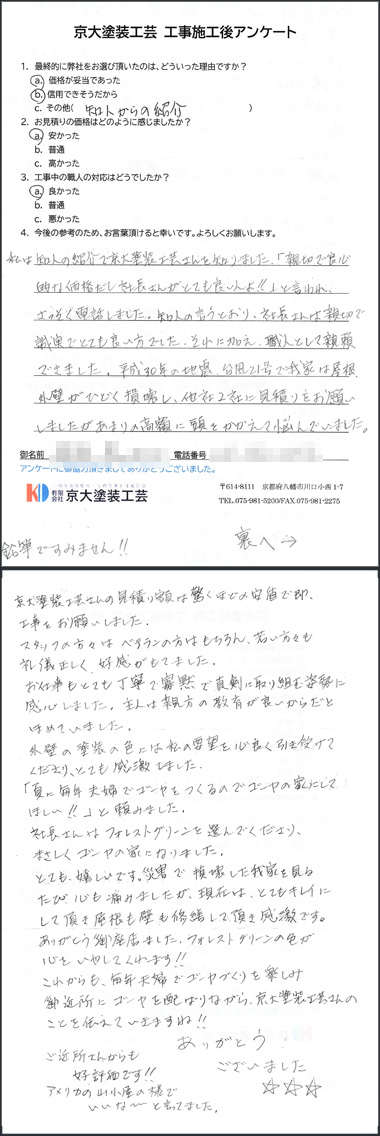 京大塗装工芸 工事施工後アンケート
1. 最終的に弊社をお選び頂いたのは、どういった理由ですか？
a. 価格が妥当であった
b. 信用できそうだから
c. その他( 知人からの紹介 )
2. お見積りの価格はどのように感じましたか？
a. 安かった
b. 普通
c. 高かった
3. 工事中の職人の対応はどうでしたか？
a. 良かった
b. 普通
c. 悪かった
4. 今後の参考のため、お言葉頂けると幸いです。よろしくお願いします。
私は知人の紹介で京大塗装工芸さんを知りました、「親切で良心
的な価格だし社長さんがとても良い人よ!!」と言われ、
さっそく電話しました。知人の言うとおり、社長さんは親切で
誠実でとても良い方でした。それに加え、職人として信頼
できました。平成30年の地震、台風21号で我家は屋根、
外壁がひどく損壊し、他社2社に見積りをお願い
しましたがあまりの高額に頭をかかえて悩んでいました。
御名前 電話番号
アンケートに御協力頂きましてありがとうございました。
KD 有限会社 京大塗装工芸
〒614-8111 京都府八幡市川口小西1-7
TEL.075-981-5200/FAX.075-981-2275
鉛筆ですみません!!
裏へ→
京大塗装工芸さんの見積り額は驚くほどの安値で即、
工事をお願いしました。
スタッフの方々はベテランの方はもちろん、若い方々も
礼儀正しく、好感がもてました。
お仕事もとても丁寧で寡黙で真剣に取り組む姿勢に
感心しました。主人は親方の教育が良いからだと
ほめていました。
外壁の塗装の色には私の要望を心良く引き受けて
くださり、とても感激しました。
「夏に毎年夫婦でゴーヤをつくるのでゴーヤの家にして
ほしい!!」と頼みました。
社長さんはフォレストグリーンを選んでくださり、
まさしくゴーヤの家になりました。
とても、嬉しいです。災害で損壊した我家を見る
たび心も痛みましたが、現在は、とてもキレイに
して頂き屋根も壁も修繕して頂き感激です。
ありがとう御座居ました。フォレストグリーンの色が
心をいやしてくれます!!
これからも、毎年夫婦でゴーヤづくりを楽しみ
御近所にゴーヤを配りながら、京大塗装工芸さんの
ことを伝えていきますね!!
ありがとう
ございました
☆☆☆
ご近所さんからも
好評価です!!
アメリカの山小屋の様で
いいな〜と言ってました。